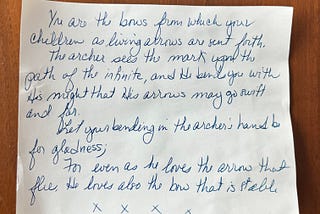 You are the bows from which your
children as living arrows are sent forth.
The archer sees the mark upon the
path of the infinite, and He bends you with
His might that His arrows may go swift
and far.
Let your bending in the archer's hand be
for gladness;
For even as he loves the arrow that
flies, He loves also the bow that is stable.
x x x x